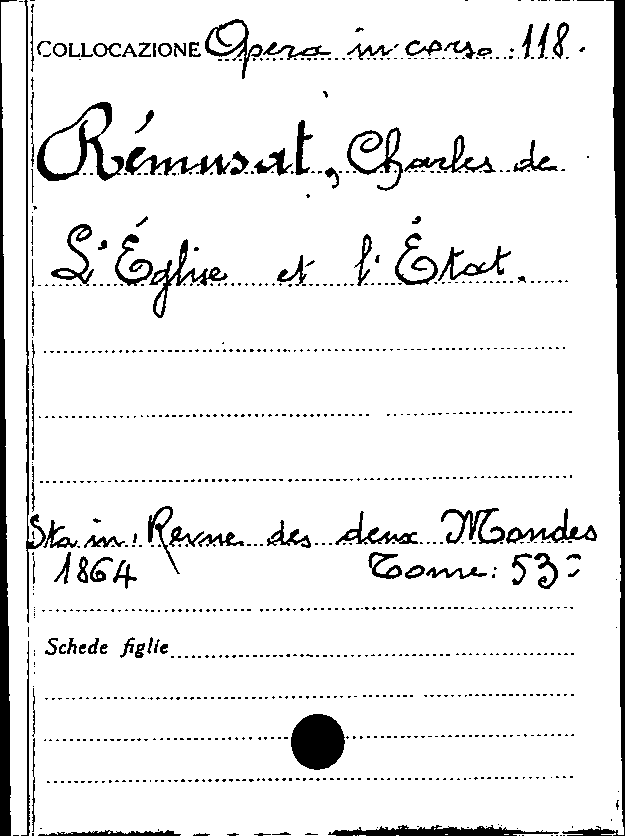 COLLOCAZIONE Opera in corso .118.
Rémusat, Charles de
L'Église et l'État.
Sta in: Revue des deux Mondes
1864 Tome: 53=
Schede figlie